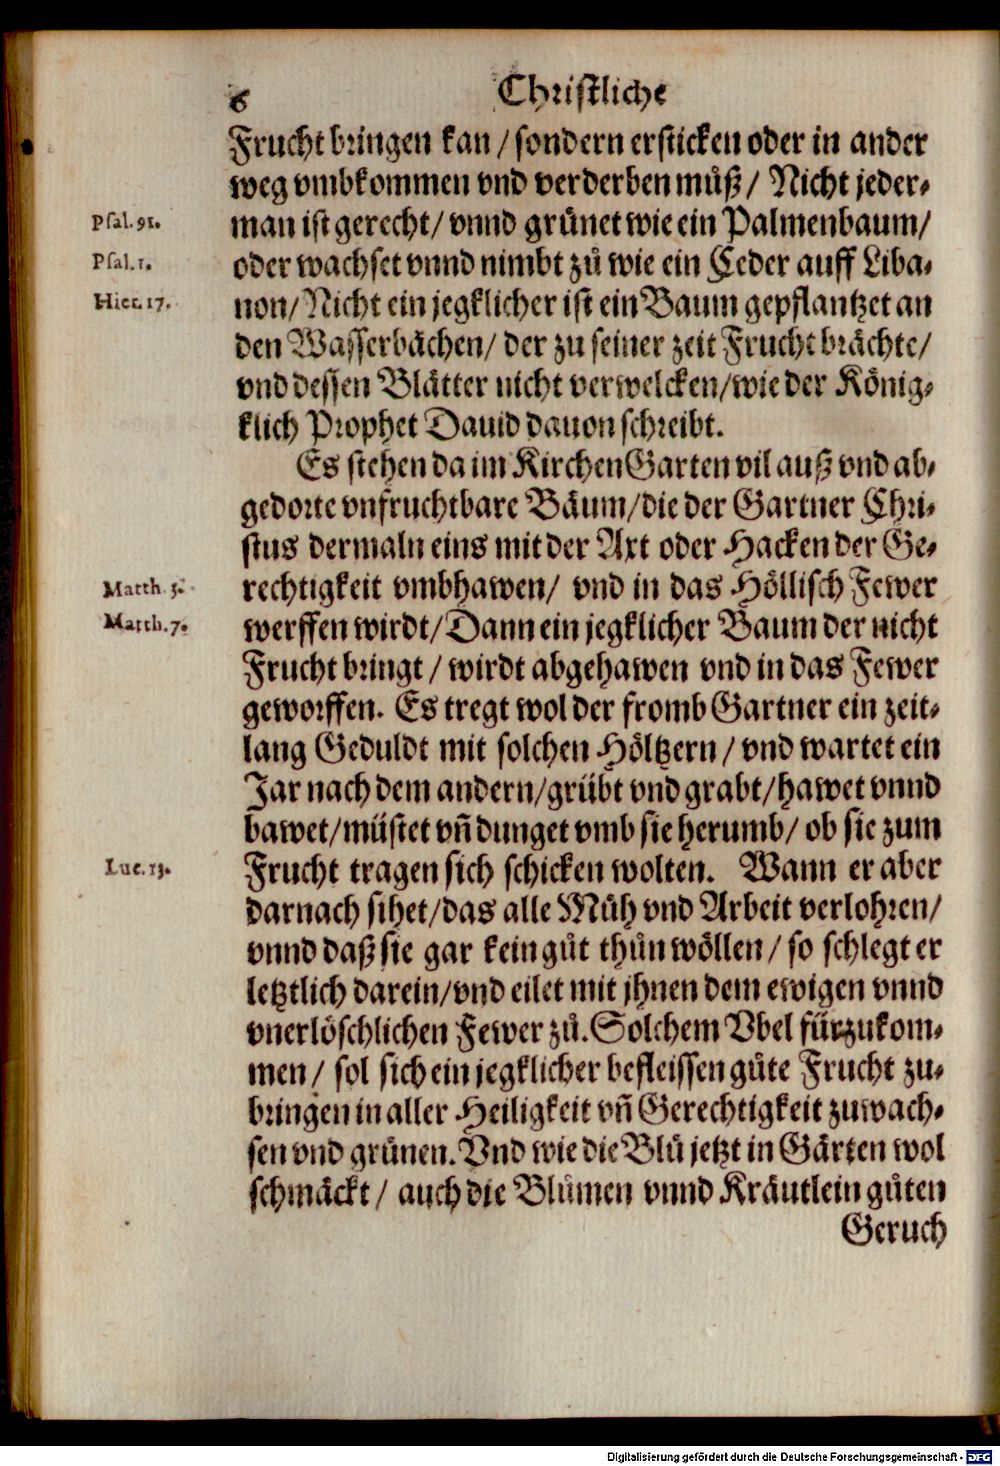 6 Christliche
Frucht bringen kan / sondern ersticken oder in ander
weg vmbkommen vnd verderben muͦß / Nicht jeder-
Psal. 91. man ist gerecht / vnnd gruͤnet wie ein Palmenbaum /
Psal. 1. oder wachset vnnd nimbt zuͦ wie ein Ceder auff Liba-
Hier. 17. non / Nicht ein jegklicher ist ein Baum gepflantzet an
den Wasserbaͤchen / der zu seiner zeit Frucht braͤchte /
vnd dessen Blaͤtter nicht verwelcken / wie der Koͤnig-
klich Prophet Dauid dauon schreibt.
Es stehen da im Kirchen Garten vil auß vnd ab-
gedorte vnfruchtbare Baͤum / die der Gartner Chri-
stus dermaln eins mit der Axt oder Hacken der Ge-
Matth. 3. rechtigkeit vmbhawen / vnd in das Hoͤllisch Fewer
Matth. 7. werffen wirdt / Dann ein jegklicher Baum der nicht
Frucht bringt / wirdt abgehawen vnd in das Fewer
geworffen. Es tregt wol der fromb Gartner ein zeit-
lang Geduldt mit solchen Hoͤltzern / vnd wartet ein
Jar nach dem andern / gruͤbt vnd grabt / hawet vnnd
bawet / muͤstet vñ dunget vmb sie herumb / ob sie zum
Luc. 13. Frucht tragen sich schicken wolten. Wann er aber
darnach sihet / das alle Muͤh vnd Arbeit verlohren /
vnnd daß sie gar kein guͦt thuͦn woͤllen / so schlegt er
letztlich darein / vnd eilet mit jhnen dem ewigen vnnd
vnerloͤschlichen Fewer zuͦ. Solchem Vbel fuͤrzukom-
men / sol sich ein jegklicher befleissen guͦte Frucht zu-
bringen in aller Heiligkeit vñ Gerechtigkeit zuwach-
sen vnd gruͤnen. Vnd wie die Bluͤ jetzt in Gaͤrten wol
schmaͤckt / auch die Bluͦmen vnnd Kraͤutlein guͦten
Geruch
Digitalisierung gefördert durch die Deutsche Forschungsgemeinschaft - DFG